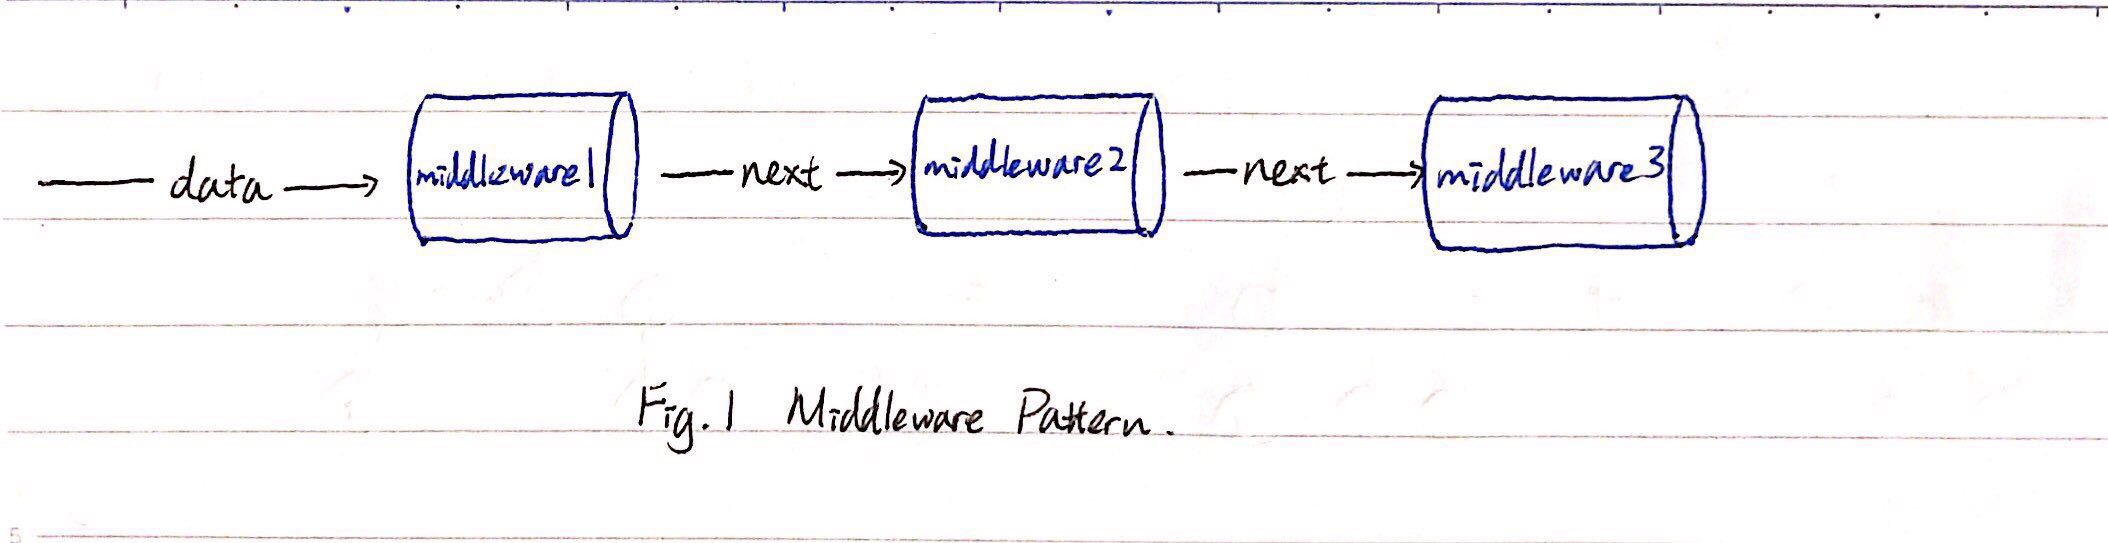 data middleware1 next middleware2 next middleware3
Fig. 1 Middleware Pattern.
5